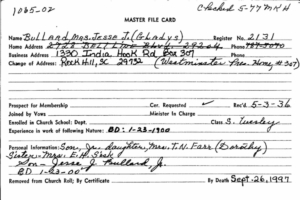 1065-02
Checked 5-77 MKH
MASTER FILE CARD
Name Bullard, Mrs. Jesse J. (Gladys) Register No. 2131
Home Address 2722 Belt Line Blvd. 29204 Phone
Business Address 1330 India Hook Rd Box 307 Phone
Change of Address: Rock Hill, SC 29732 (Westminster Pres. Home # 307)
Prospect for Membership Cor. Requested ✓ Rec'd 5-3-36
Joined by Vows Minister to Charge
Enrolled in Church School: Dept. Class S. Wesley
Experience in work following of Nature: BD: 1-23-1900
Personal Information: Son, Jr. daughter, Mrs. T. N. Farr (Dorothy)
Sister - Mrs. E. H.
Son - Jesse J. Bullard, Jr.
BD 1-23-00
Removed from Church Roll; By Certificate By Death Sept. 26, 1997